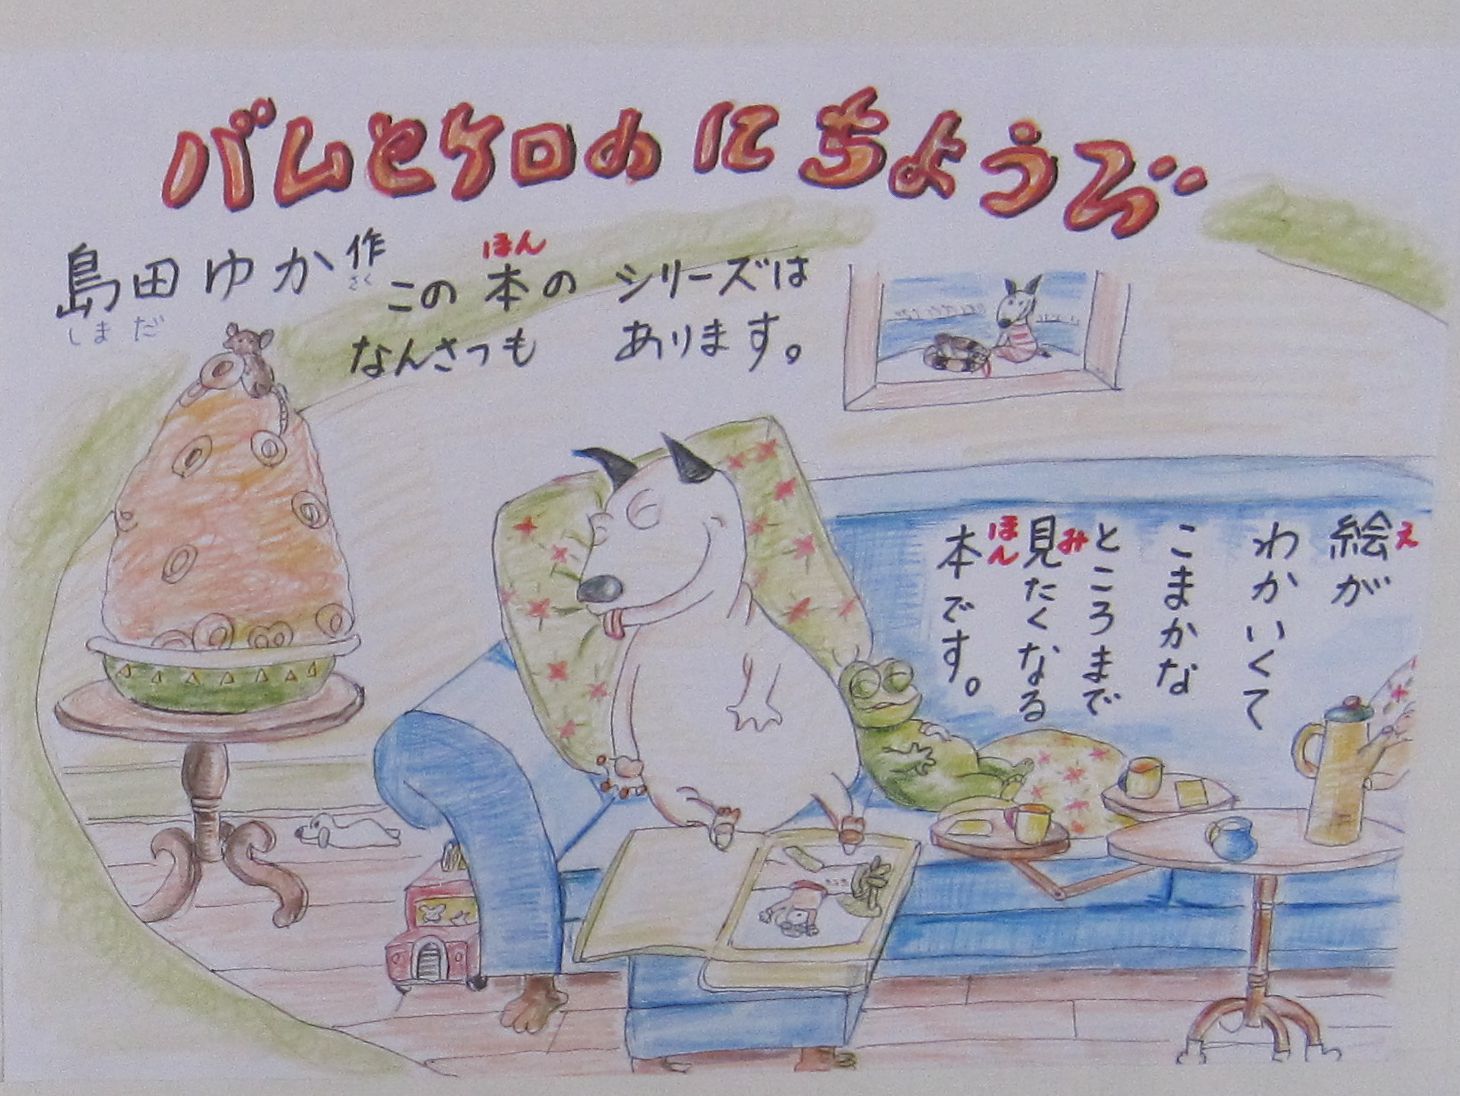 バムとケロのにちようび
島田ゆか作
しまだ
さく
ほん
この本のシリーズは
なんさつも あります。
絵が
え
わかいくて
こまかな
ところまで
見たくなる
み
本です。
ほん